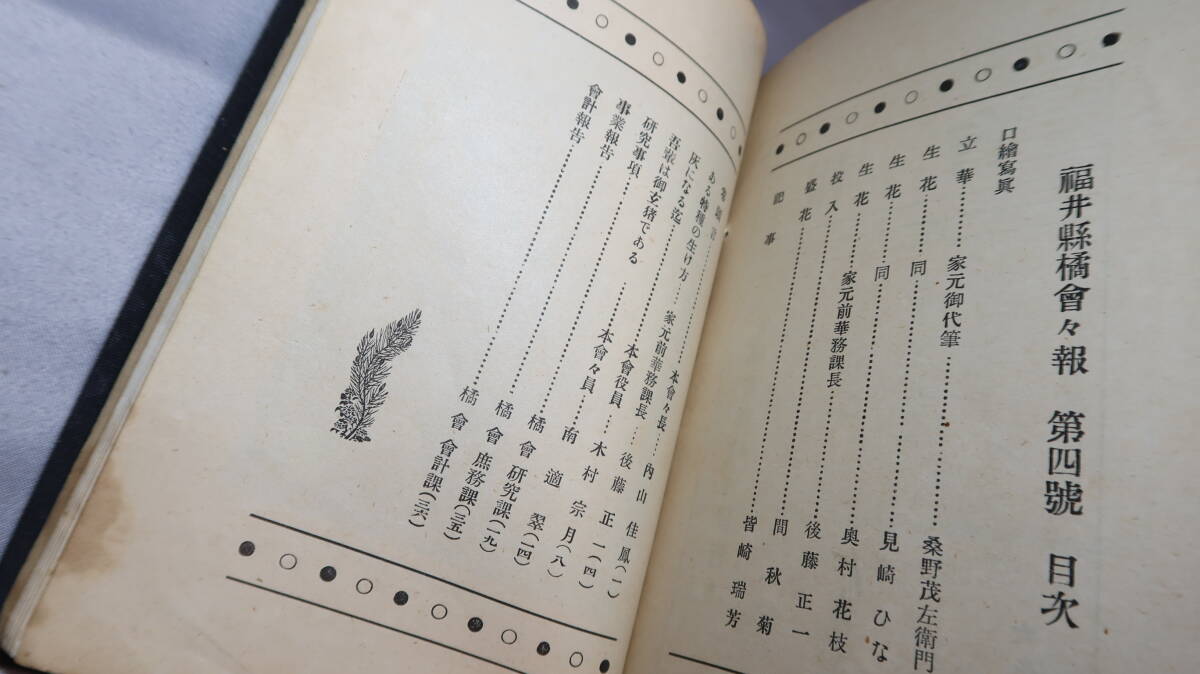 福井縣橘會々報 第四號 目次
口繪寫眞
立華………家元御代筆………桑野茂左衛門
生花………同………見崎ひな
生花………同………奥村花枝
生花………家元前華務課長………後藤正一
投入………間秋菊
盛花………皆崎瑞芳
記事
卷頭言………本會々長………内山佳鳳(一)
ある特種の生け方………家元前華務課長………後藤正一(四)
灰になる迄………本會役員………木村宗月(八)
吾輩は御玄猪である………本會々員………南適翠(一四)
研究事項………橘會研究課(一九)
事業報告………橘會庶務課(三五)
會計報告………橘會會計課(三六)